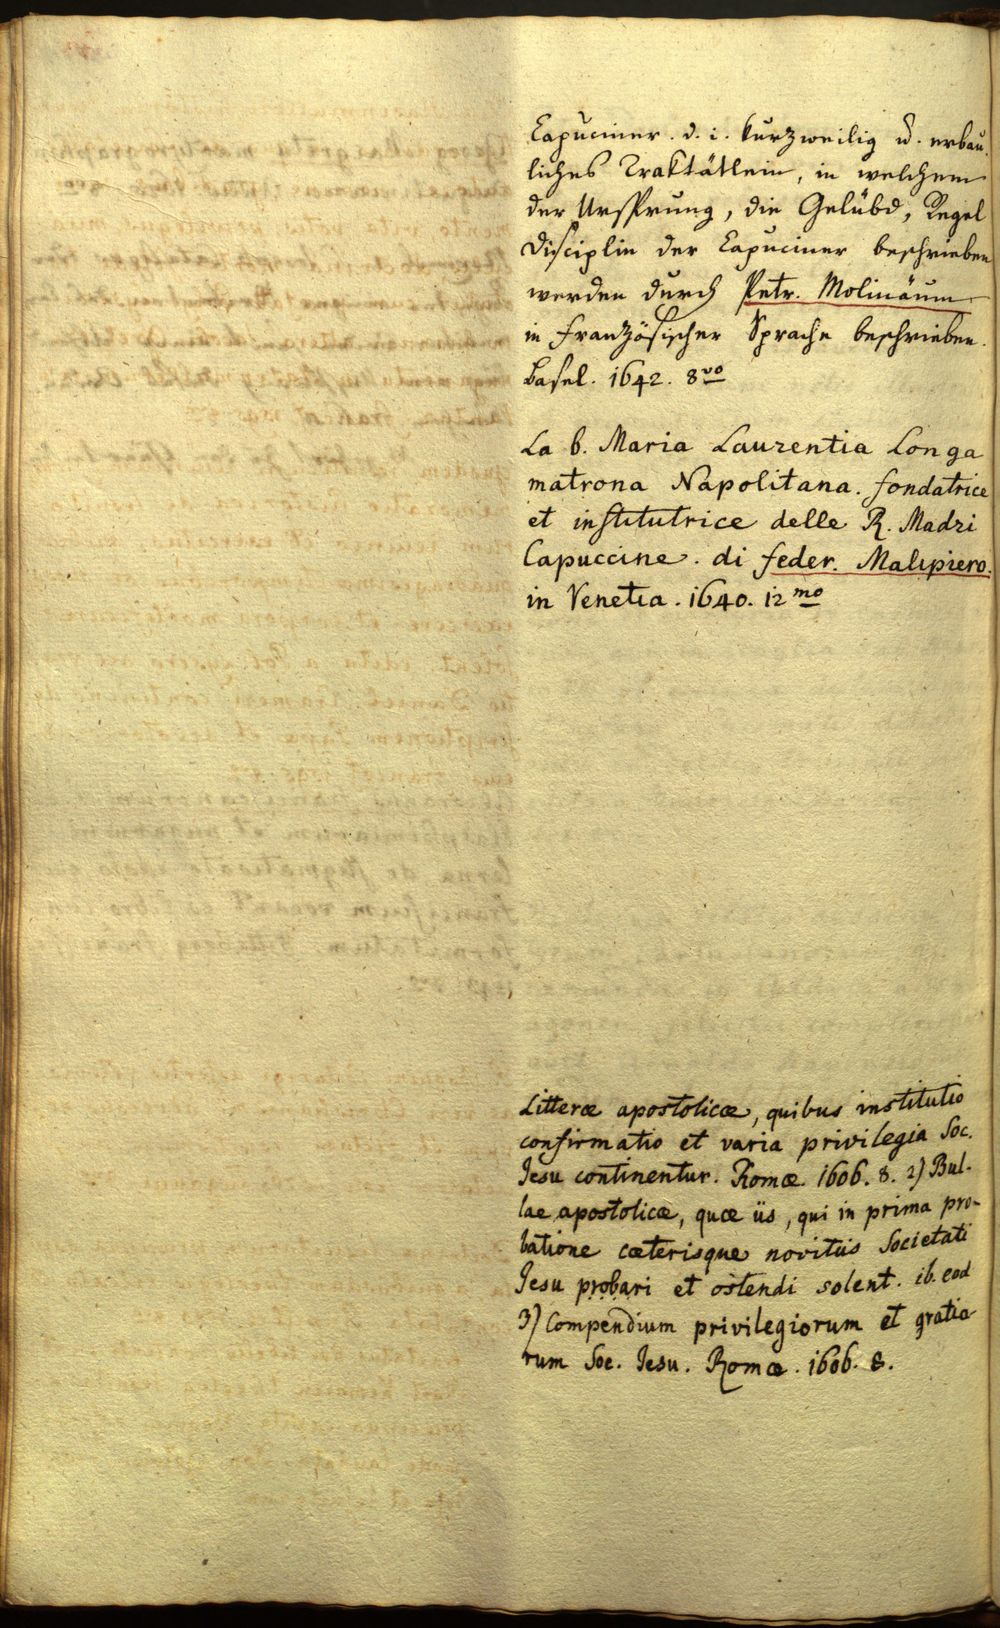 Capuciner. d. i. kurzweilig u. erbau-
liches Traktätlein, in welchem
der Ursprung, die Gelübd, Regel
Disciplin der Capuciner beschrieben
werden durch Petr. Molinäum
in französischer Sprache beschrieben.
Basel. 1642. 8vo
La b. Maria Laurentia Longa
matrona Napolitana. fondatrice
et institutrice delle R. Madri
Capuccine. di feder. Malipiero.
in Venetia. 1640. 12mo
Litteræ apostolicæ, quibus institutio
confirmatio et varia privilegia Soc.
Jesu continentur. Romæ 1606. 8. 2) Bul-
lae apostolicæ, quæ iis, qui in prima pro-
batione cæterisque novitiis Societati
Jesu probari et ostendi solent. ib. eod
3) Compendium privilegiorum et gratia-
rum Soc. Jesu. Romæ. 1606. 8.